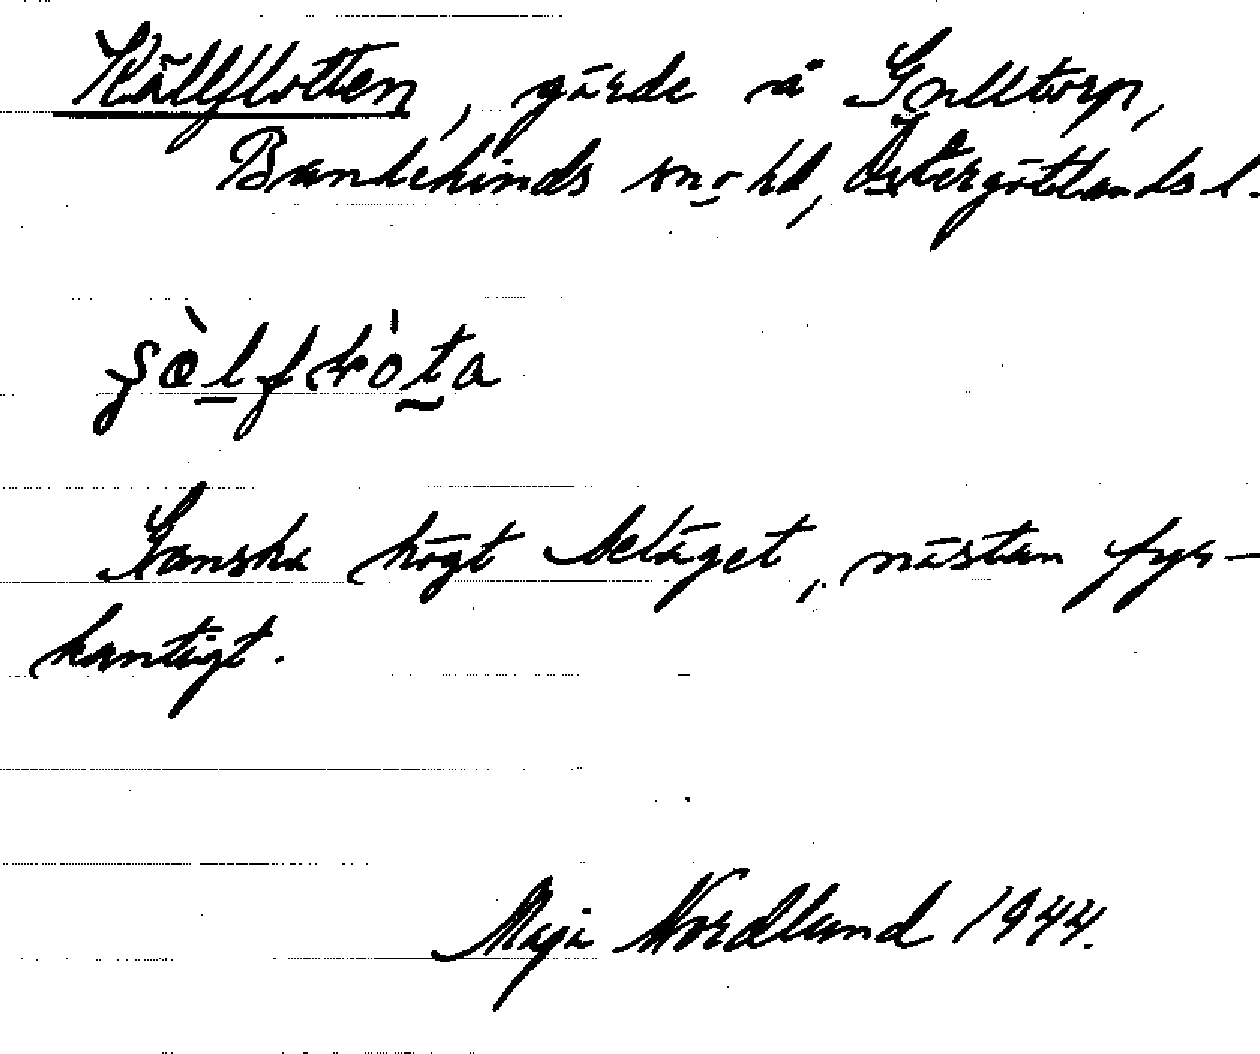 Källflotten, gärde å Gulltorp,
Bankekinds sn o hd, Östergötlands l.
Ganska högt beläget, nästan fyr-
kantigt.
Maja Nordlund 1944.